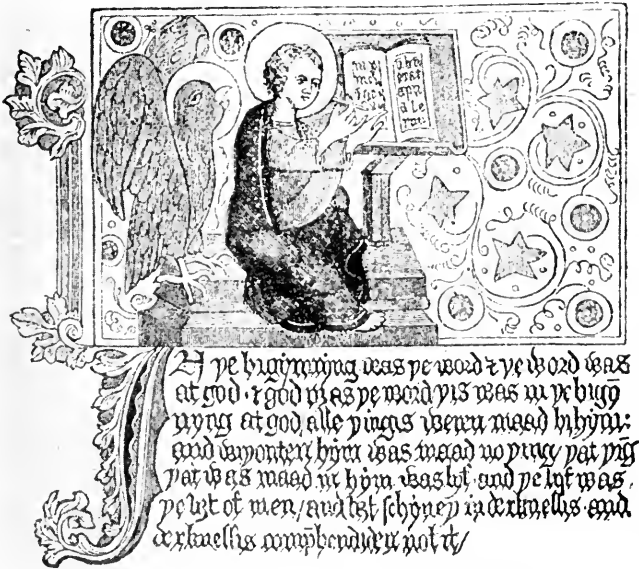 IN þe bigynnyng was þe word ⁊ þe word was
at god · ⁊ god was þe word þis was in þe bigyn̄
nyng at god, alle þingis weren maad bi hym:
and wiþouten hym was maad no þing/ þat þīg
þat was maad in hym was lyf · and þe lyf was ·
þe liȝt of men/ and liȝt schyneþ in derknessis · and
derknessis comphendiden not it/